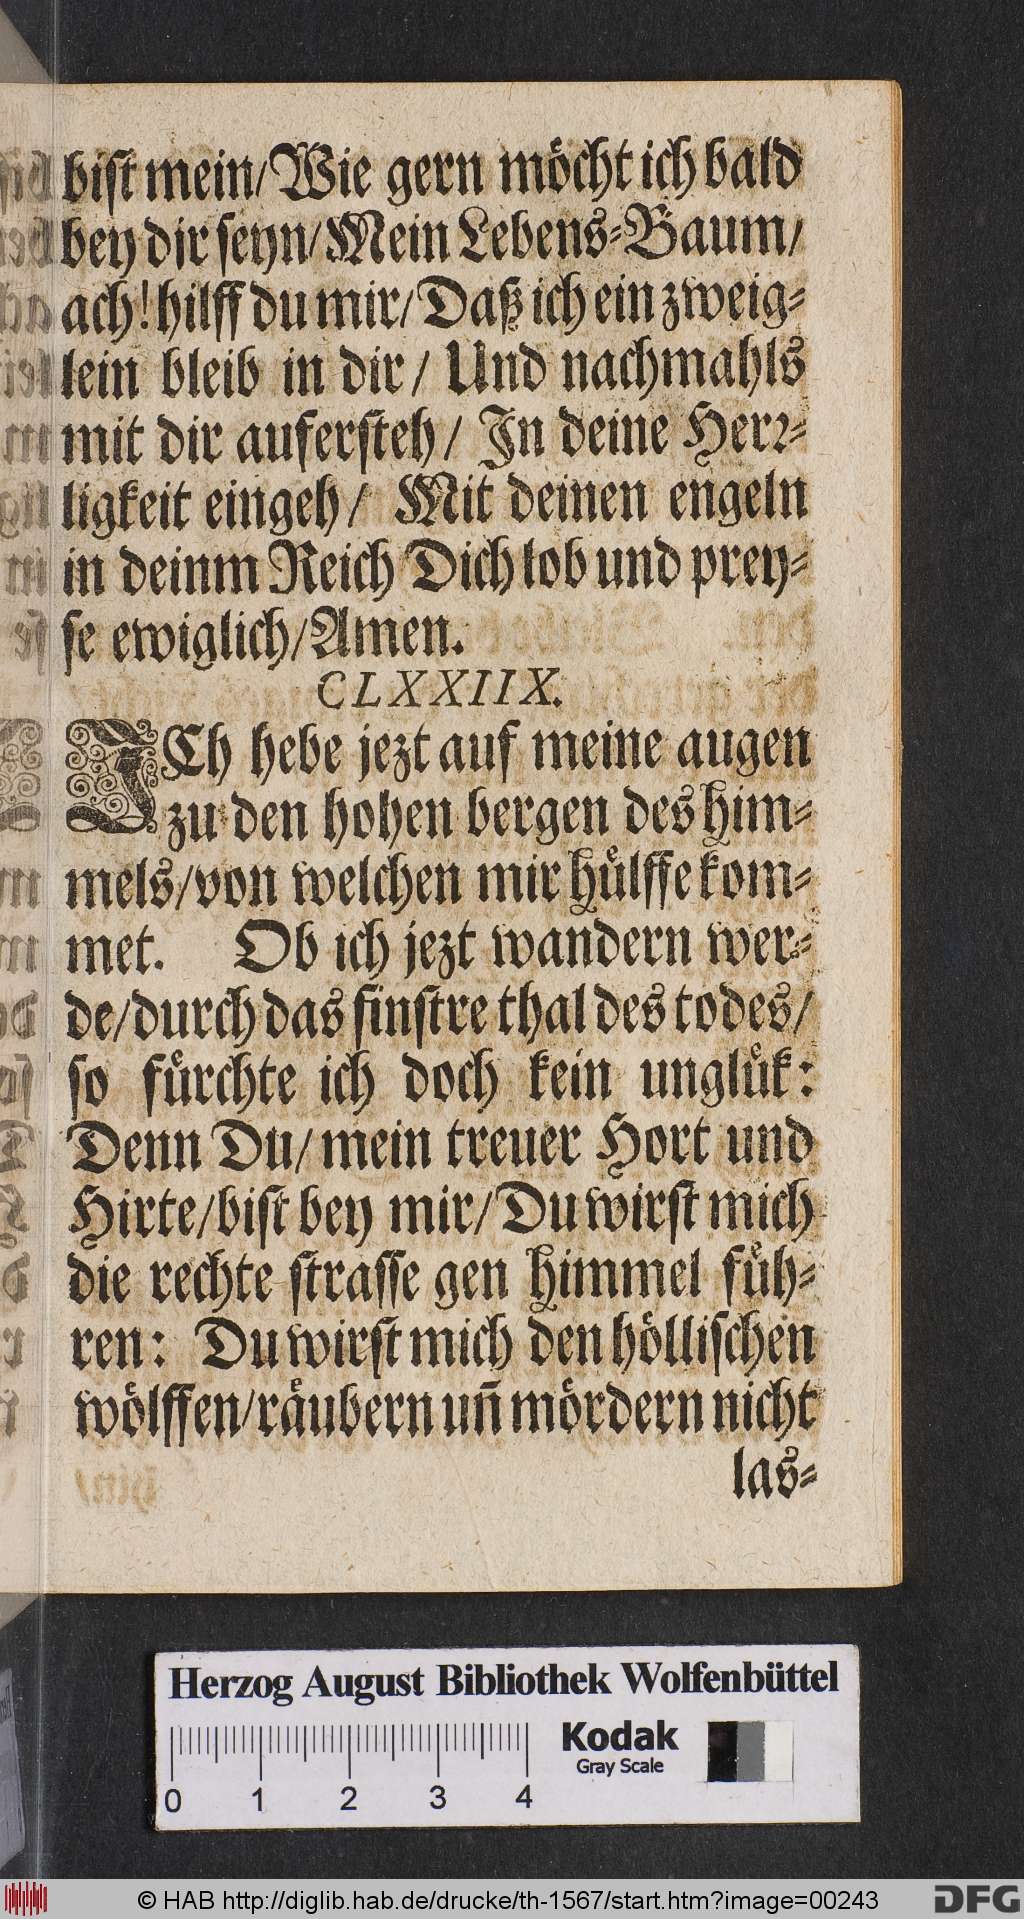 bist mein/ Wie gern möcht ich bald
bey dir seyn/ Mein Lebens-Baum/
ach! hilff du mir/ Daß ich ein zweig-
lein bleib in dir/ Und nachmahls
mit dir aufersteh/ In deine Herr-
ligkeit eingeh/ Mit deinen engeln
in deinm Reich Dich lob und prey-
se ewiglich/ Amen.
CLXXIIX.
ICh hebe jezt auf meine augen
zu den hohen bergen des him-
mels/ von welchen mir hülffe kom-
met. Ob ich jezt wandern wer-
de/ durch das finstre thal des todes/
so fürchte ich doch kein unglük:
Denn Du/ mein treuer Hort und
Hirte/ bist bey mir/ Du wirst mich
die rechte strasse gen himmel füh-
ren: Du wirst mich den höllischen
wölffen/ räubern uñ mördern nicht
las-
Herzog August Bibliothek Wolfenbüttel
Kodak
Gray Scale
0 1 2 3 4
© HAB http://diglib.hab.de/drucke/th-1567/start.htm?image=00243
DFG